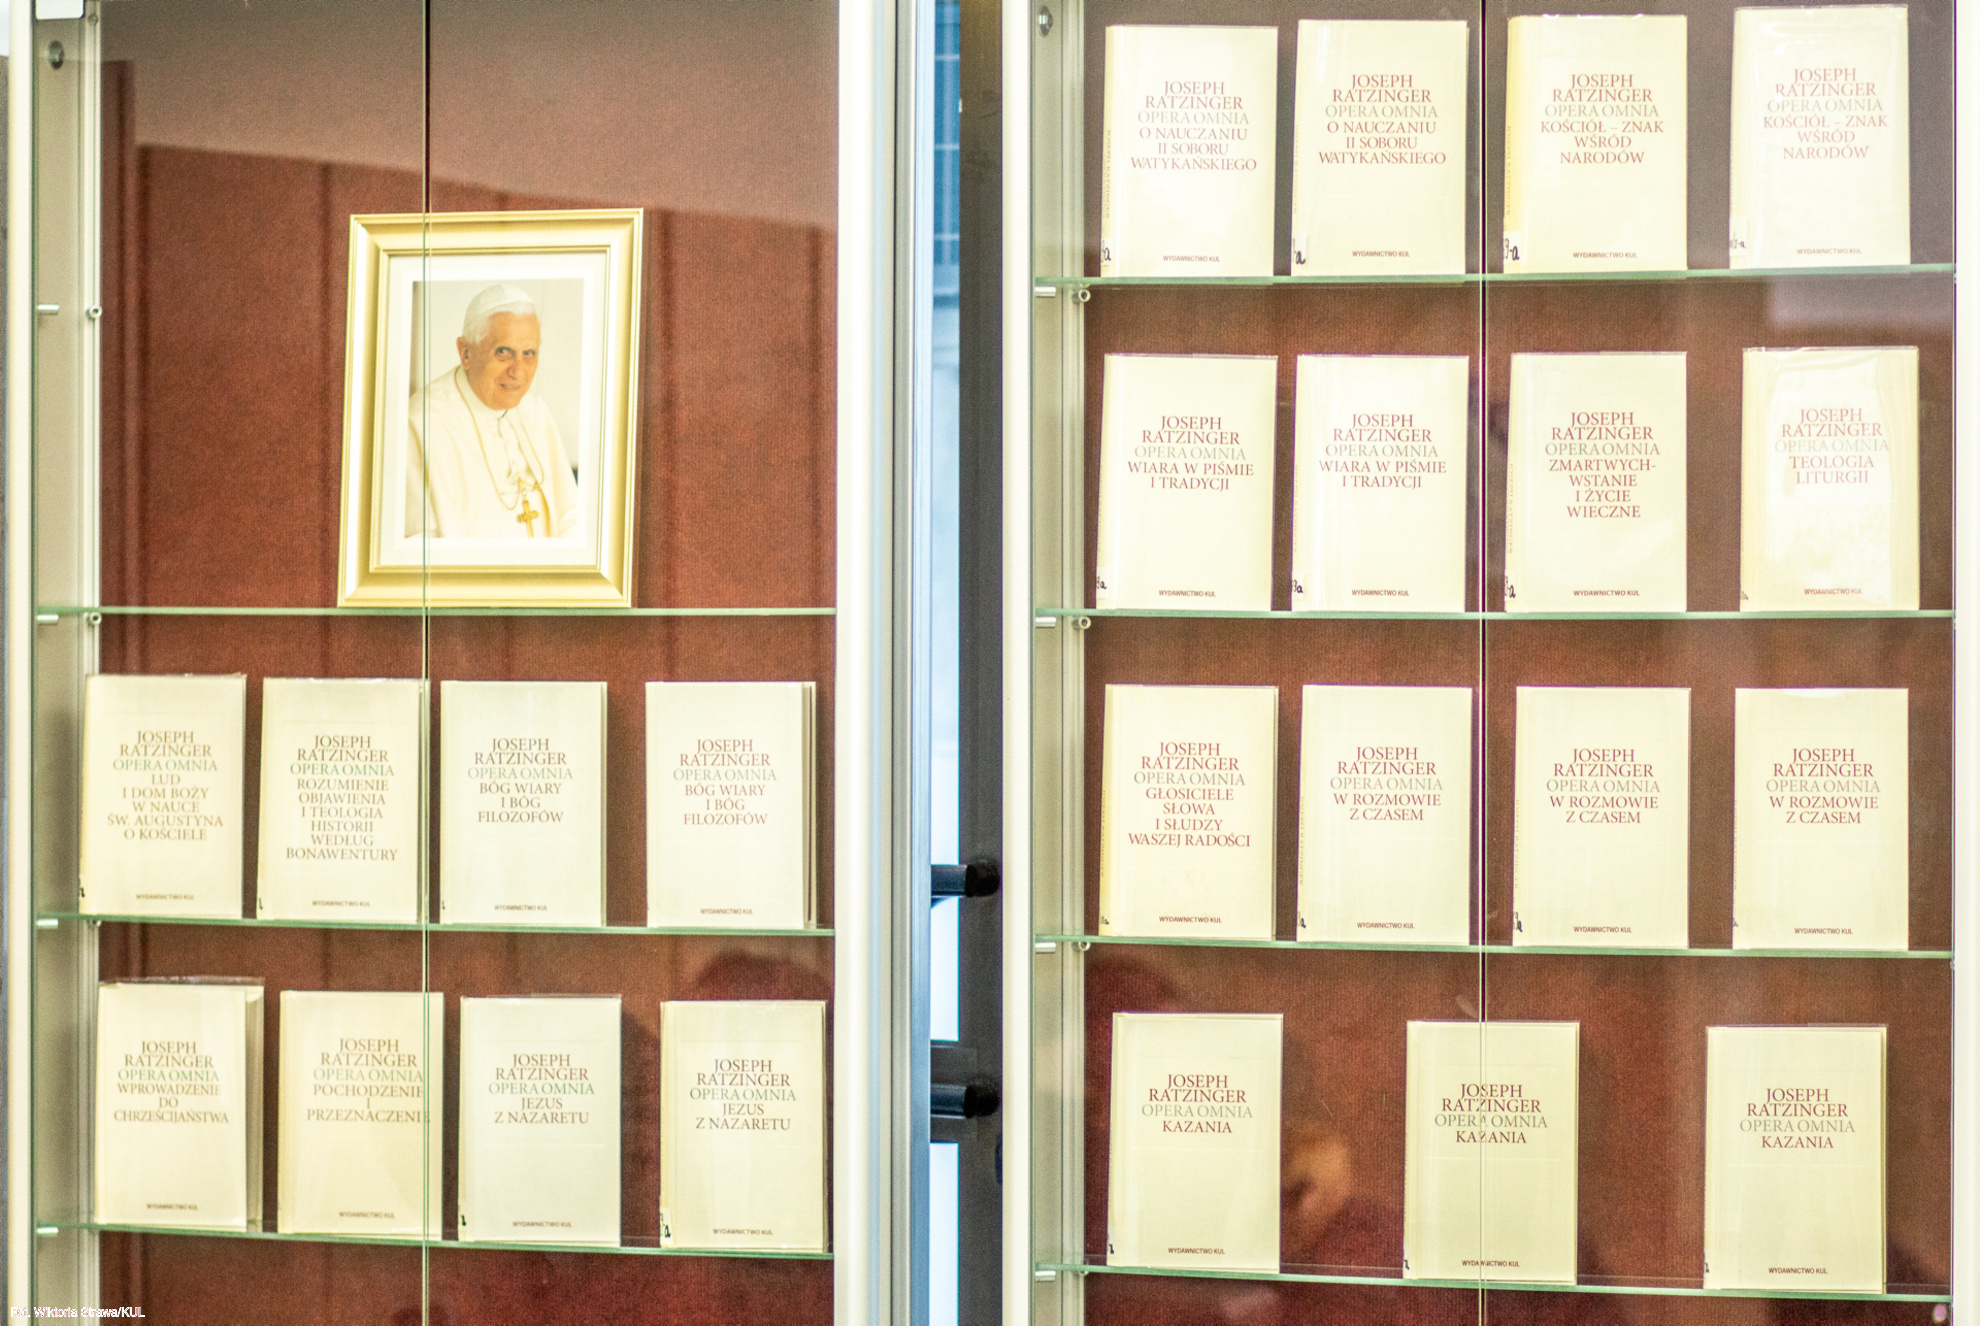 JOSEPH
RATZINGER
OPERA OMNIA
LUD
I DOM BOŻY
W NAUCE
ŚW. AUGUSTYNA
O KOŚCIELE
WYDAWNICTWO KUL
JOSEPH
RATZINGER
OPERA OMNIA
ROZUMIENIE
OBJAWIENIA
I TEOLOGIA
HISTORII
WEDŁUG
BONAWENTURY
WYDAWNICTWO KUL
JOSEPH
RATZINGER
OPERA OMNIA
BÓG WIARY
I BÓG
FILOZOFÓW
WYDAWNICTWO KUL
JOSEPH
RATZINGER
OPERA OMNIA
BÓG WIARY
I BÓG
FILOZOFÓW
WYDAWNICTWO KUL
JOSEPH
RATZINGER
OPERA OMNIA
WPROWADZENIE
DO
CHRZEŚCIJAŃSTWA
WYDAWNICTWO KUL
JOSEPH
RATZINGER
OPERA OMNIA
POCHODZENIE
I
PRZEZNACZENIE
WYDAWNICTWO KUL
JOSEPH
RATZINGER
OPERA OMNIA
JEZUS
Z NAZARETU
WYDAWNICTWO KUL
JOSEPH
RATZINGER
OPERA OMNIA
JEZUS
Z NAZARETU
WYDAWNICTWO KUL
JOSEPH
RATZINGER
OPERA OMNIA
O NAUCZANIU
II SOBORU
WATYKAŃSKIEGO
WYDAWNICTWO KUL
JOSEPH
RATZINGER
OPERA OMNIA
O NAUCZANIU
II SOBORU
WATYKAŃSKIEGO
WYDAWNICTWO KUL
JOSEPH
RATZINGER
OPERA OMNIA
KOŚCIÓŁ – ZNAK
WŚRÓD
NARODÓW
WYDAWNICTWO KUL
JOSEPH
RATZINGER
OPERA OMNIA
KOŚCIÓŁ – ZNAK
WŚRÓD
NARODÓW
WYDAWNICTWO KUL
JOSEPH
RATZINGER
OPERA OMNIA
WIARA W PIŚMIE
I TRADYCJI
WYDAWNICTWO KUL
JOSEPH
RATZINGER
OPERA OMNIA
WIARA W PIŚMIE
I TRADYCJI
WYDAWNICTWO KUL
JOSEPH
RATZINGER
OPERA OMNIA
ZMARTWYCH-
WSTANIE
I ŻYCIE
WIECZNE
WYDAWNICTWO KUL
JOSEPH
RATZINGER
OPERA OMNIA
TEOLOGIA
LITURGII
WYDAWNICTWO KUL
JOSEPH
RATZINGER
OPERA OMNIA
GŁOSICIELE
SŁOWA
I SŁUDZY
WASZEJ RADOŚCI
WYDAWNICTWO KUL
JOSEPH
RATZINGER
OPERA OMNIA
W ROZMOWIE
Z CZASEM
WYDAWNICTWO KUL
JOSEPH
RATZINGER
OPERA OMNIA
W ROZMOWIE
Z CZASEM
WYDAWNICTWO KUL
JOSEPH
RATZINGER
OPERA OMNIA
W ROZMOWIE
Z CZASEM
WYDAWNICTWO KUL
JOSEPH
RATZINGER
OPERA OMNIA
KAZANIA
WYDAWNICTWO KUL
JOSEPH
RATZINGER
OPERA OMNIA
KAZANIA
WYDAWNICTWO KUL
JOSEPH
RATZINGER
OPERA OMNIA
KAZANIA
WYDAWNICTWO KUL
Fot. Wiktoria Strawa/KUL